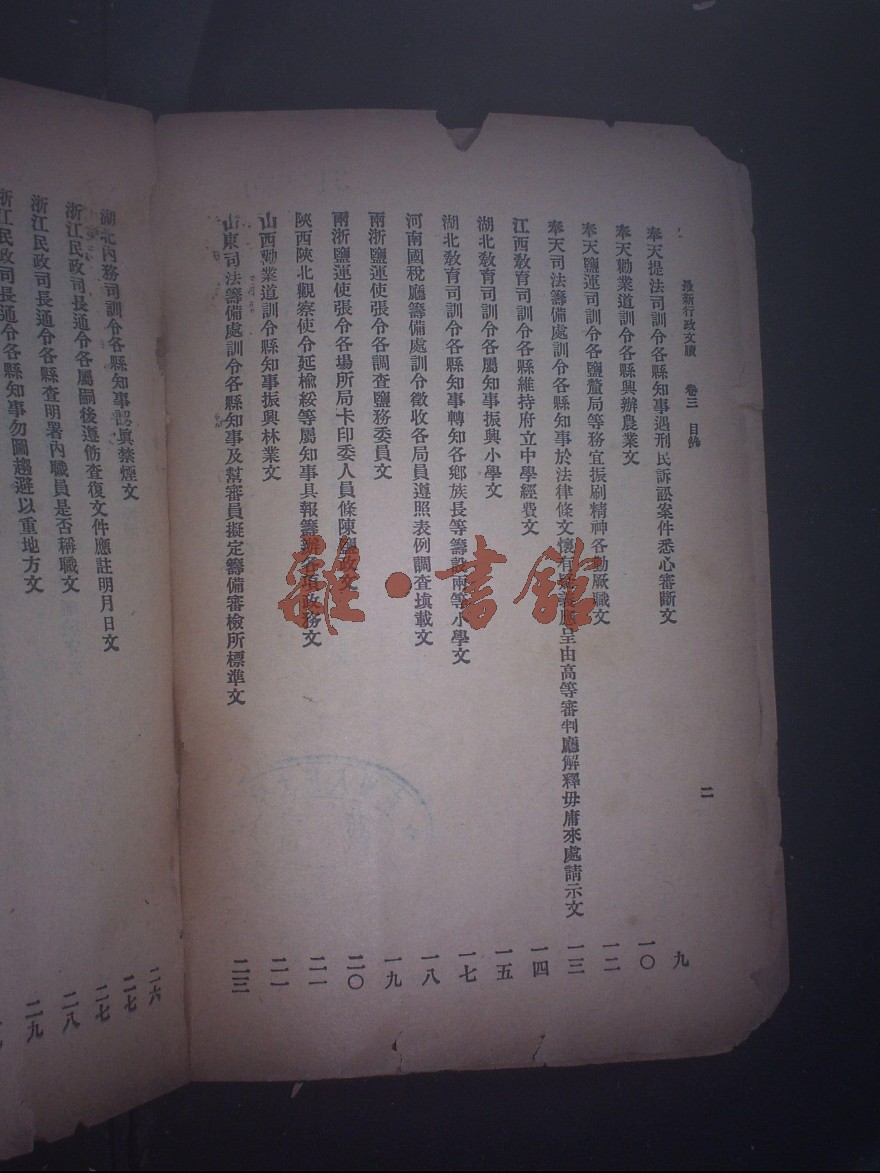 最新行政文牘 卷三 目錄 二
奉天提法司訓令各縣知事遇刑民訴訟案件悉心審斷文 九
奉天勸業道訓令各縣興辦農業文 一〇
奉天鹽運司訓令各鹽釐局等務宜振刷精神各勤厥職文 一二
奉天司法籌備處訓令各縣知事於法律條文懷有疑義應呈由高等審判廳解釋毋庸來處請示文 一三
江西教育司訓令各縣維持府立中學經費文 一四
湖北教育司訓令各屬知事振興小學文 一五
湖北教育司訓令各縣知事轉知各鄉族長等籌設兩等小學文 一七
河南國稅廳籌備處訓令徵收各局員遵照表例調查填載文 一八
兩浙鹽運使張令各調查鹽務委員文 一九
兩浙鹽運使張令各場所局卡印委人員條陳鹽政文 二〇
陝西陝北觀察使令延榆綏等屬知事具報籌辦各項政務文 二一
山西勸業道訓令縣知事振興林業文 二一
山東司法籌備處訓令各縣知事及幫審員擬定籌備審檢所標準文 二三
湖北內務司訓令各縣知事認真禁煙文 二六
浙江民政司長通令各屬嗣後遵飭查復文件應註明月日文 二七
浙江民政司長通令各縣查明署內職員是否稱職文 二七
浙江民政司長通令各縣知事勿圖趨避以重地方文 二八
二九
雜·書館